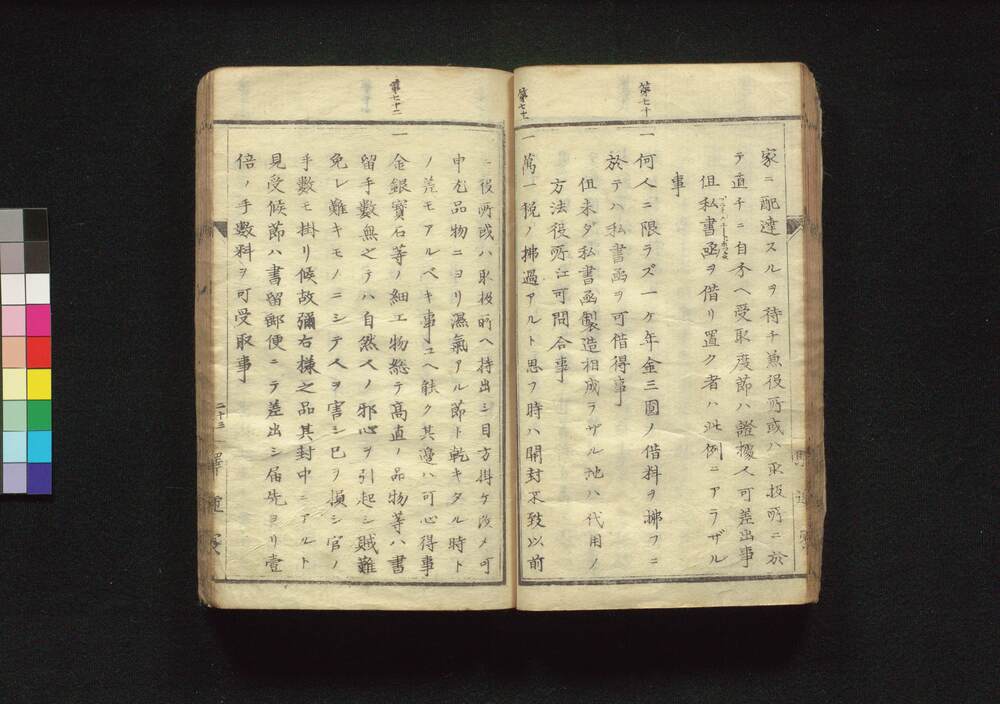 家ニ配達スルヲ待チ兼役所或ハ取扱所ニ於
テ直チニ自身ヘ受取度節ハ證據人可差出事
但私書函ヲ借リ置ク者ハ此例ニアラザル
事
第七十
一何人ニ限ラズ一ケ年金三圓ノ借料ヲ拂フニ
於テハ私書函ヲ可借得事
但未ダ私書函製造相成ラザル地ハ代用ノ
方法役所江可問合事
第七十一
一萬一税ノ拂過アルト思フ時ハ開封不致以前
ニ役所或ハ取扱所ヘ持出シ目方掛ケ改メ可
申尤品物ニヨリ濕氣アル節ト乾キタル時ト
ノ差モアルベキ事ユヘ能ク其邊ハ可心得事
第七十二
一金銀寶石等ノ細工物総テ高直ノ品物等ハ書
留手數無之テハ自然人ノ邪心ヲ引起シ賊難
免レ難キモノニシテ人ヲ害シ已ヲ損シ官ノ
手數モ掛リ候故彌右様之品其封中ニアルト
見受候節ハ書留郵便ニテ差出シ届先ヨリ壹
倍ノ手數料ヲ可受取事
二十三
驛逓寮